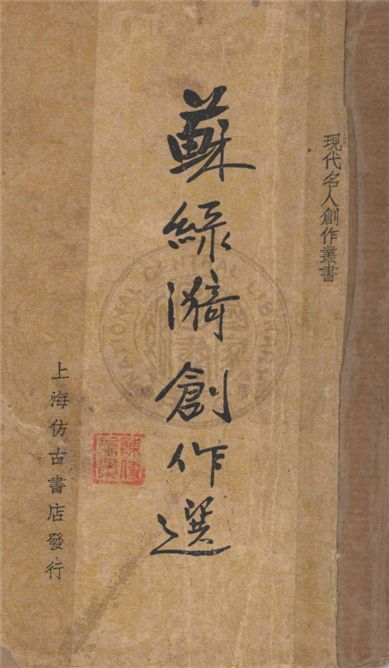 現代名人創作叢書
蘇綠漪創作選
上海仿古書店發行